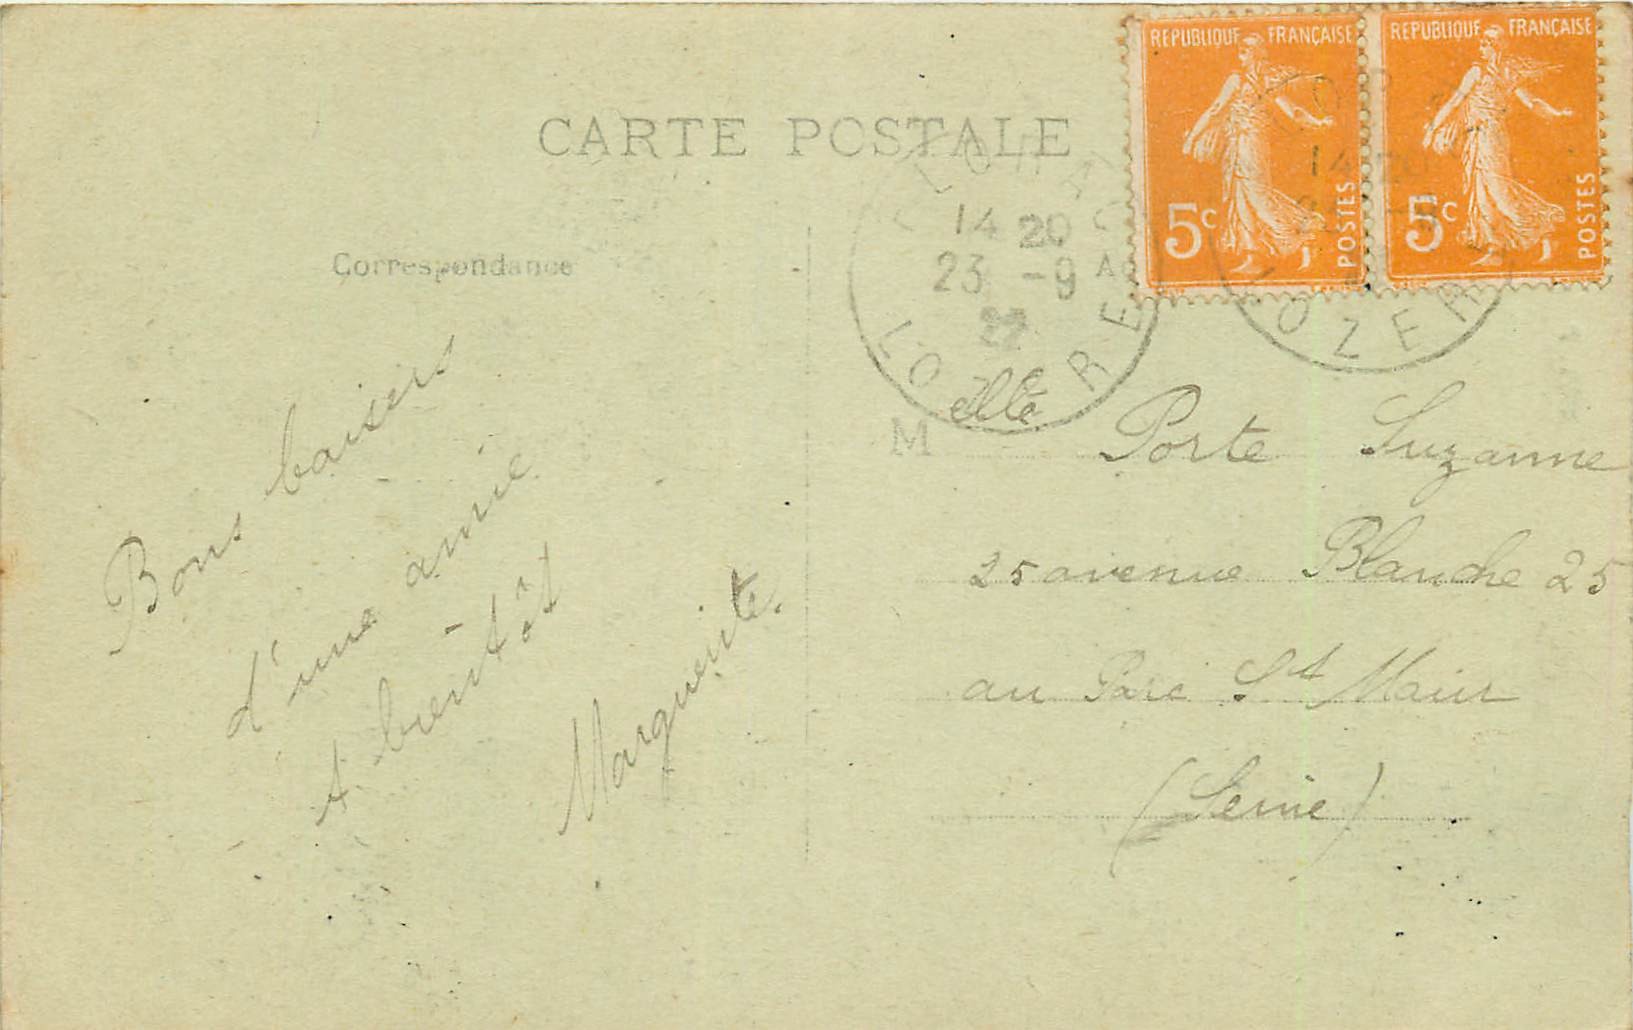 CARTE POSTALE
Correspondance
Bons baisers
d'une amie
A bientôt
Marguerite.
REPUBLIQUE FRANÇAISE
5c
POSTES
REPUBLIQUE FRANÇAISE
5c
POSTES
14 20
23 -9
22
LOZERE
14 20
LOZERE
M elle Porte Suzanne
25 avenue Blanche 25
au Parc St Maur
(Seine)